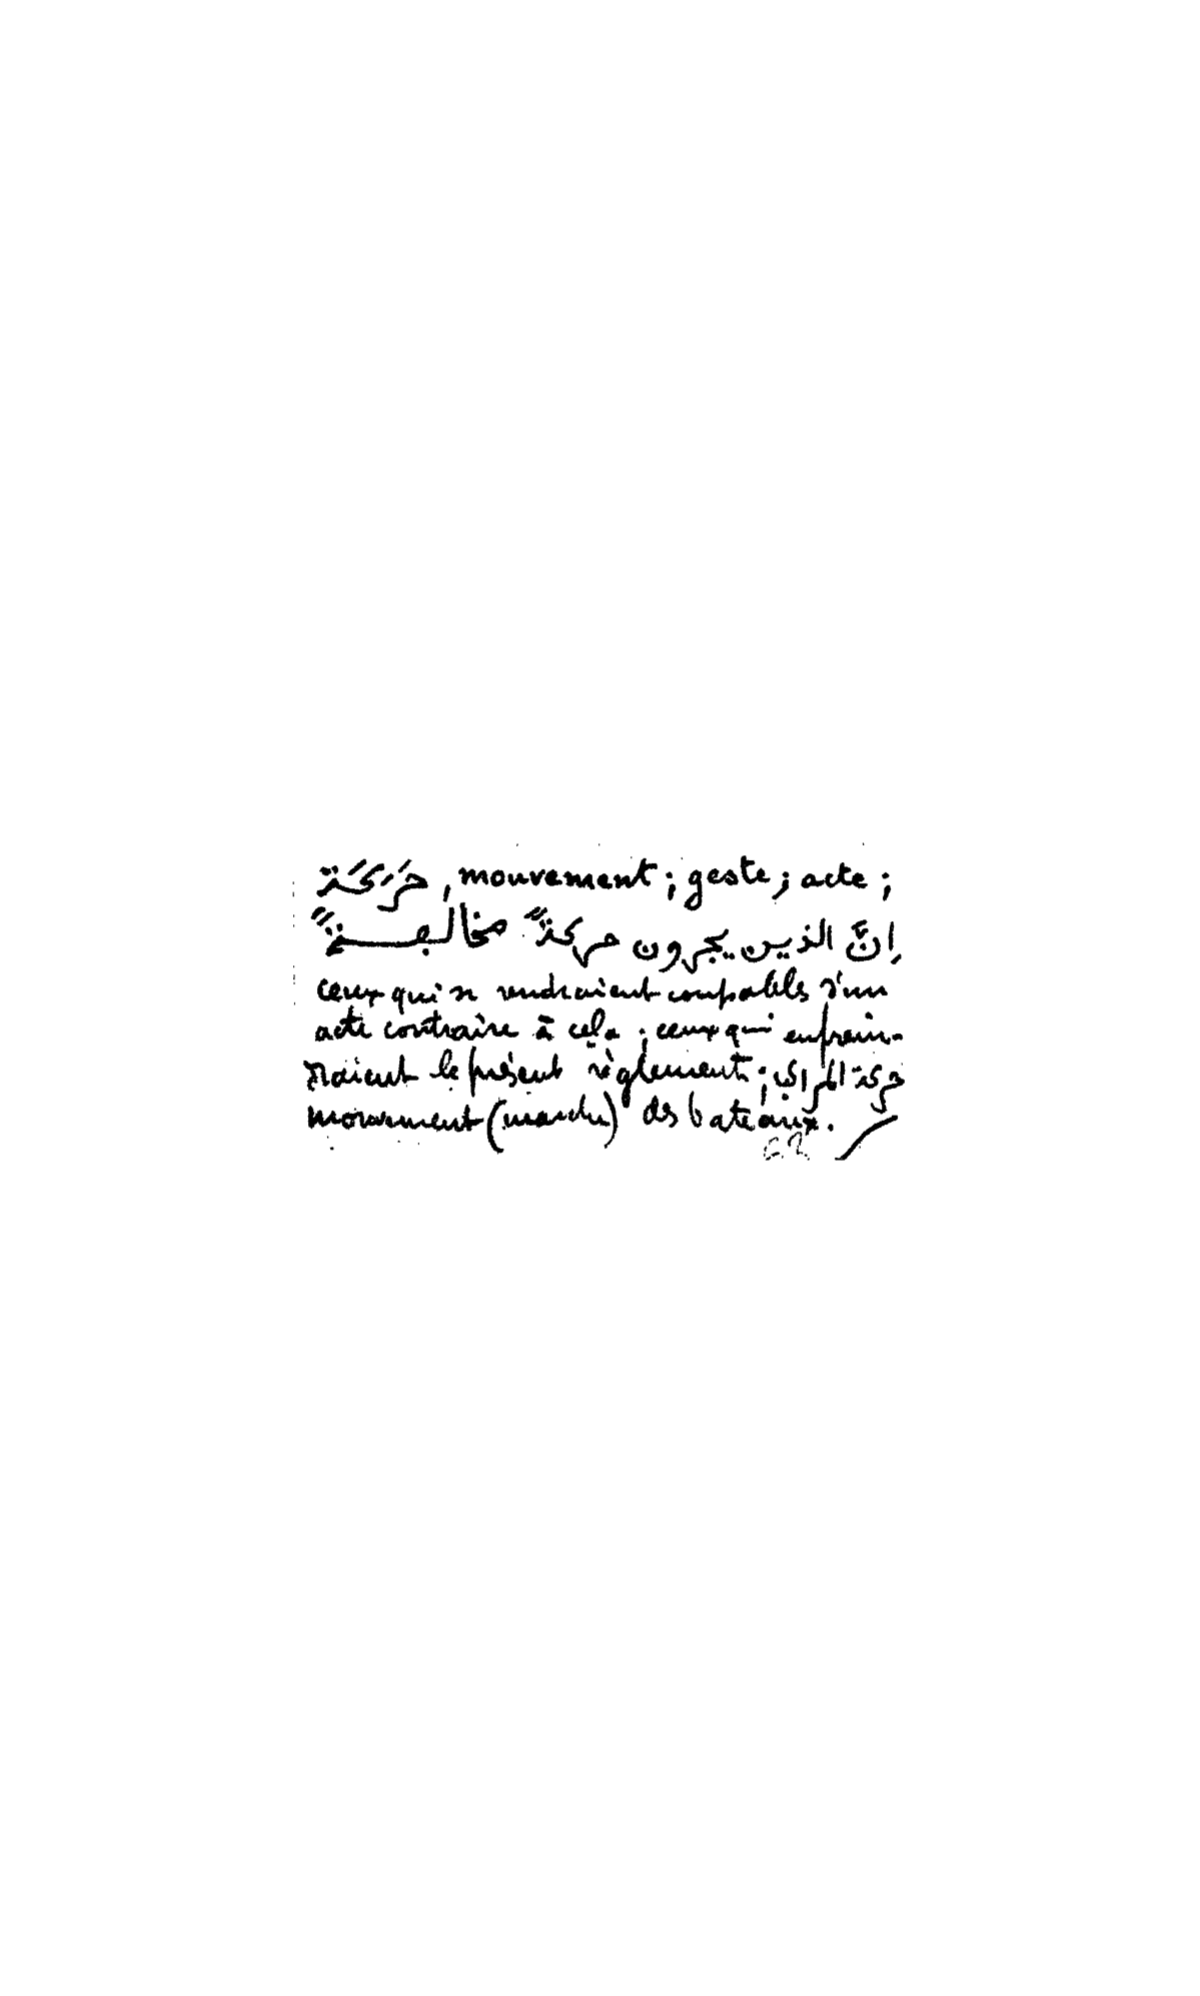 حَرَكَة, mouvement; geste; acte;
اِنَّ الذين يجرون حركةً مخالفةً
ceux qui se rendraient coupables d'un
acte contraire à cela; ceux qui enfrein-
draient le présent règlement; حركة المراكب
mouvement (marche) des bateaux.